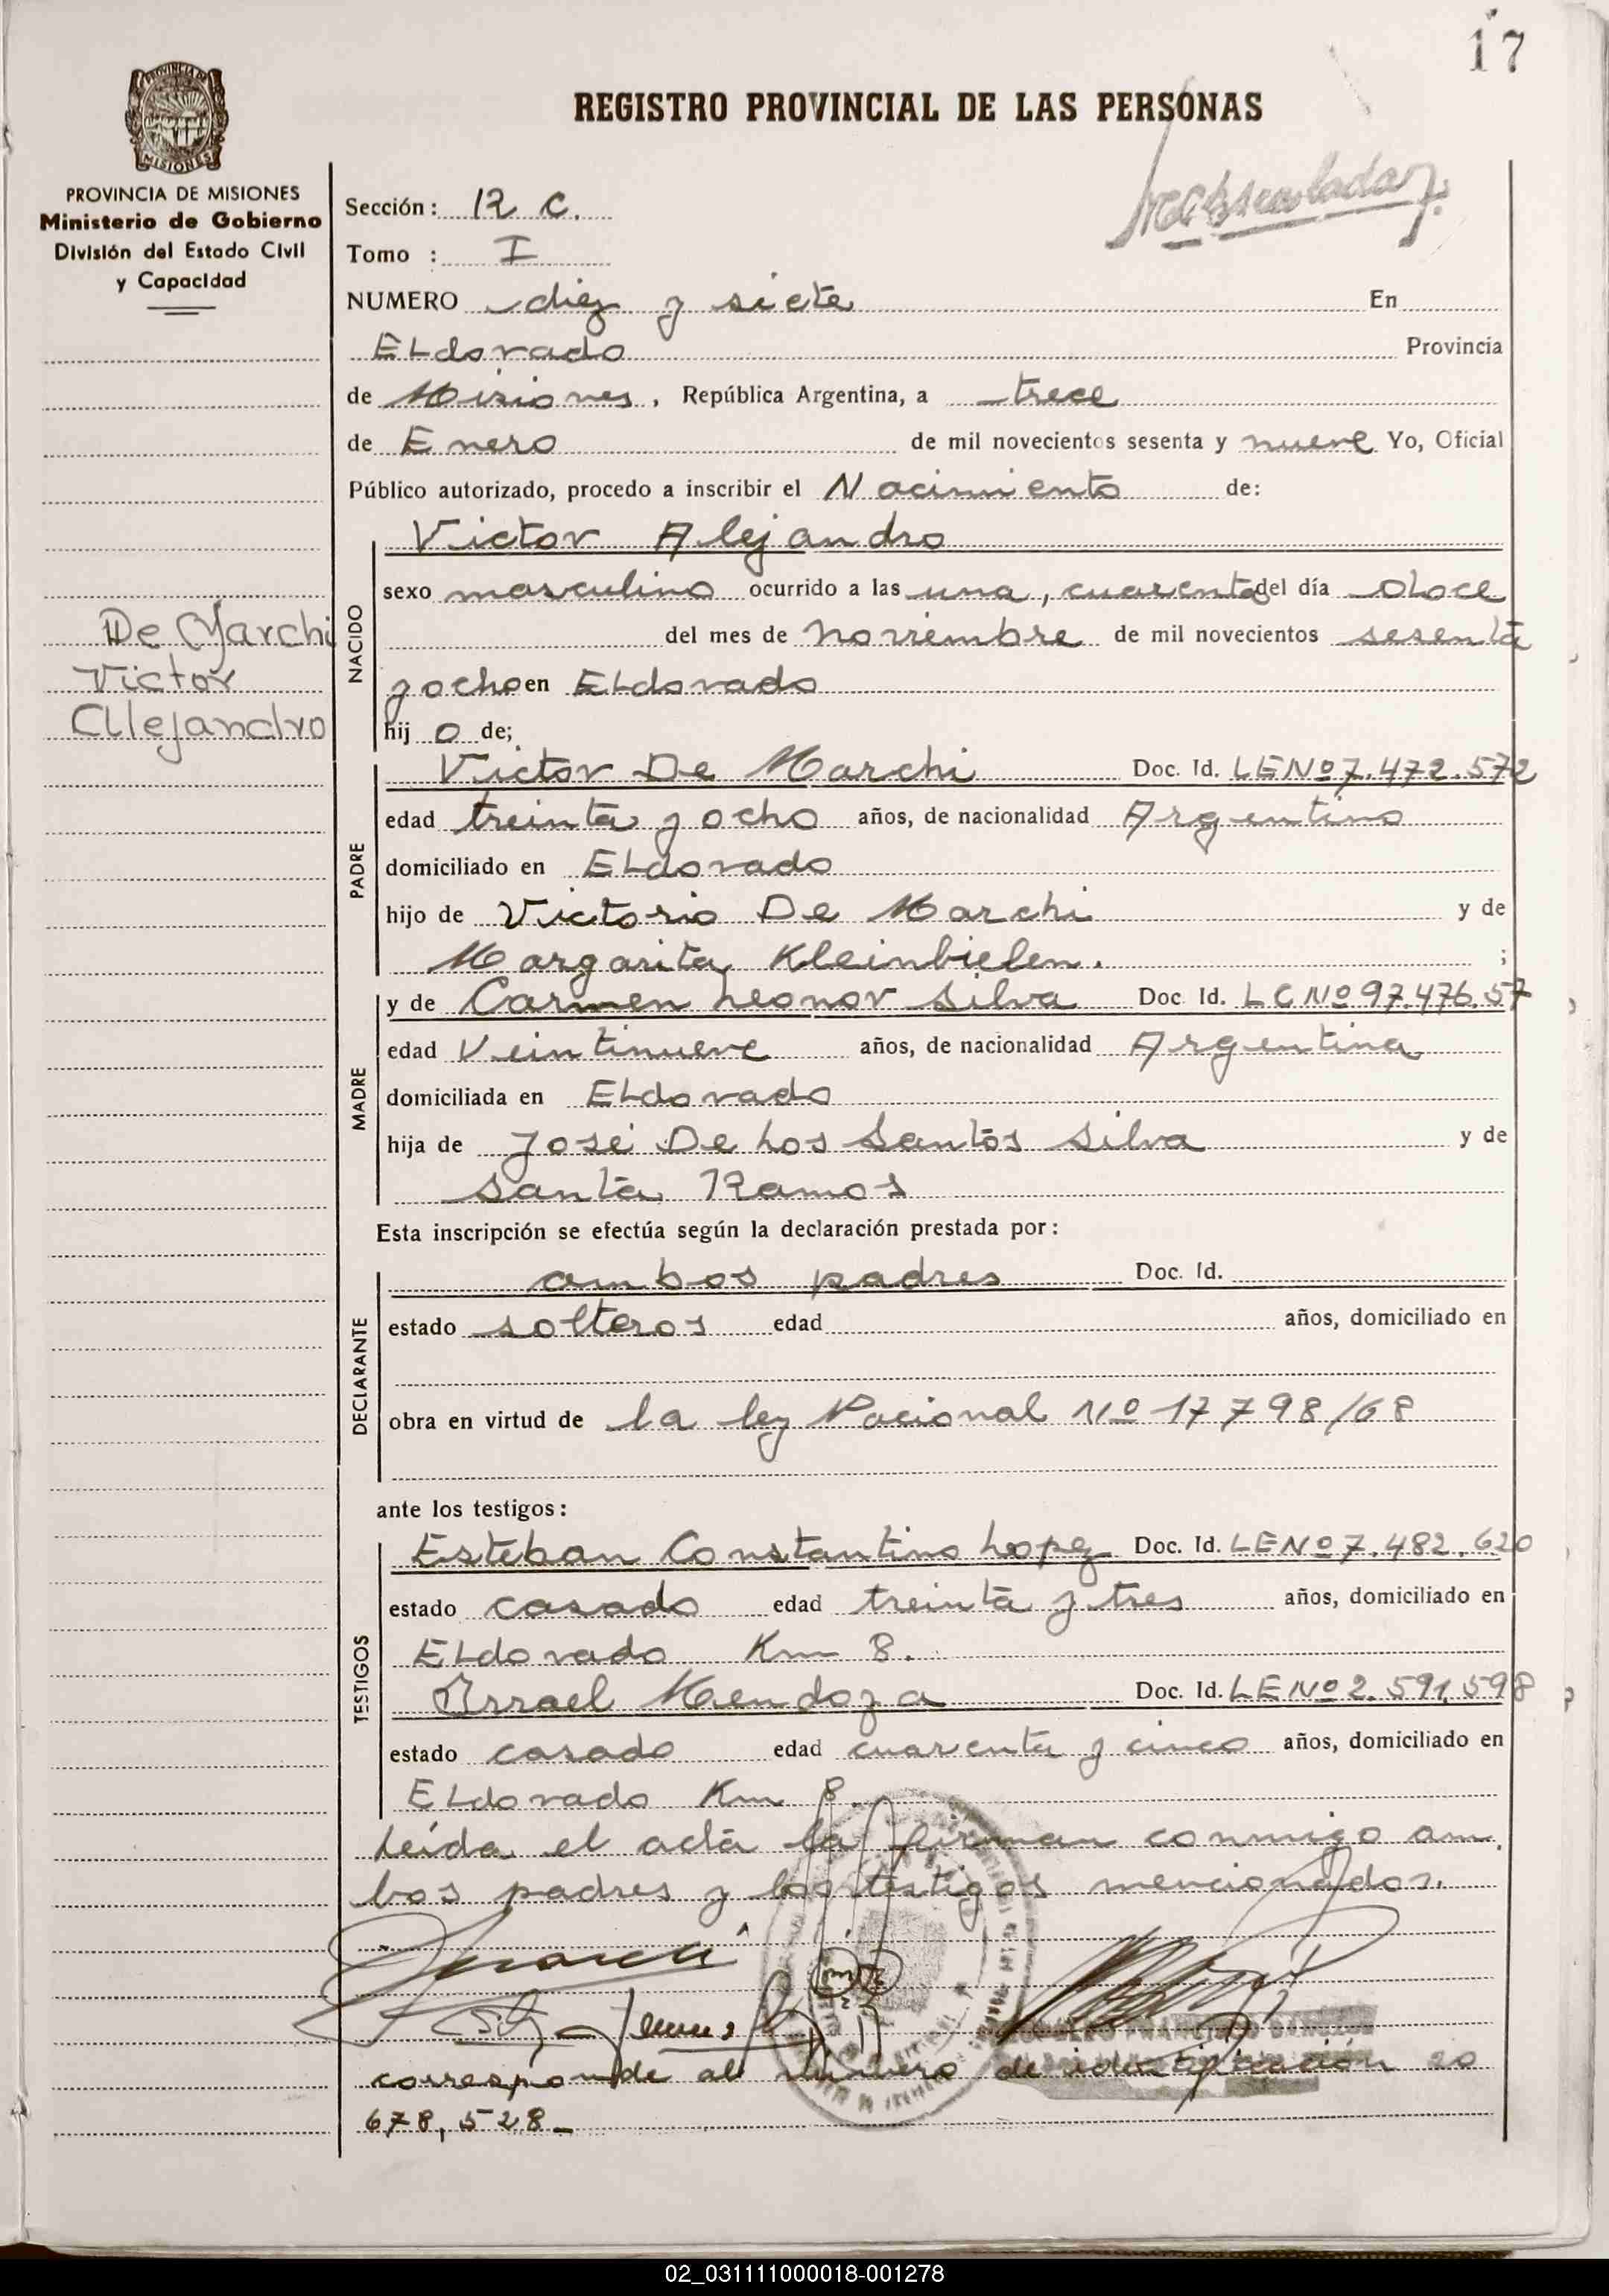 17
REGISTRO PROVINCIAL DE LAS PERSONAS
PROVINCIA DE MISIONES
Ministerio de Gobierno
División del Estado Civil
y Capacidad
De Marchi
Victor
Alejandro
Sección: 12 C.
Tomo : I
NUMERO diez y siete En
ELdorado Provincia
de Misiones, República Argentina, a trece
de Enero de mil novecientos sesenta y nueve Yo, Oficial
Público autorizado, procedo a inscribir el Nacimiento de:
NACIDO
Victor Alejandro
sexo masculino ocurrido a las una, cuarenta del día doce
del mes de noviembre de mil novecientos sesenta
y ocho en ELdorado
hij o de;
PADRE
Victor De Marchi Doc. Id. LE Nº 7.472.572
edad treinta y ocho años, de nacionalidad Argentino
domiciliado en ELdorado
hijo de Victorio De Marchi y de
Margarita Kleinbielen. ;
MADRE
y de Carmen Leonor Silva Doc. Id. LC Nº 97.476.57
edad Veintinueve años, de nacionalidad Argentina
domiciliada en ELdorado
hija de José De Los Santos Silva y de
Santa Ramos
Esta inscripción se efectúa según la declaración prestada por:
DECLARANTE
ambos padres Doc. Id.
estado solteros edad años, domiciliado en
obra en virtud de la ley Nacional Nº 17798/68
ante los testigos:
TESTIGOS
Esteban Constantino Lopez Doc. Id. LE Nº 7.482.620
estado casado edad treinta y tres años, domiciliado en
ELdorado Km 8.
Israel Mendoza Doc. Id. LE Nº 2.591.598
estado casado edad cuarenta y cinco años, domiciliado en
ELdorado Km 8.
Leída el acta la firman conmigo am.
bos padres y los testigos mencionados.
corresponde al número de identificación 20
678,528_
02_031111000018-001278